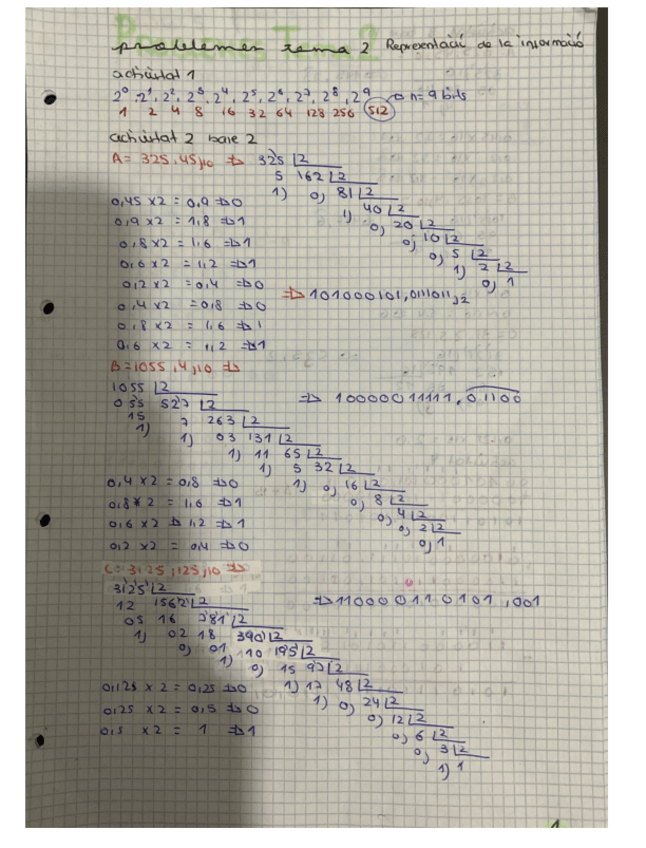 problemes tema 2 Representació de la informació
activitat 1
2⁰, 2¹, 2², 2³, 2⁴, 2⁵, 2⁶, 2⁷, 2⁸, 2⁹ ⇒ n = 9 bits
1 2 4 8 16 32 64 128 256 512
activitat 2 base 2
A = 325,45,10 ⇒ 325 |2
5 162 |2
1) 0) 81 |2
0,45 x2 = 0,9 ⇒ 0
1) 40 |2
0,9 x2 = 1,8 ⇒ 1
0) 20 |2
0,8 x2 = 1,6 ⇒ 1
0) 10 |2
0,6 x2 = 1,2 ⇒ 1
0) 5 |2
1) 2 |2
0,2 x2 = 0,4 ⇒ 0
0) 1
0,4 x2 = 0,8 ⇒ 0
⇒ 101000101,0111011,2
0,8 x2 = 1,6 ⇒ 1
0,6 x2 = 1,2 ⇒ 1
B = 1055,4,10 ⇒
1055 |2
⇒ 10000011111,01100
055 527 |2
15 7 263 |2
1) 1) 03 131 |2
1) 11 65 |2
1) 5 32 |2
0,4 x2 = 0,8 ⇒ 0
1) 0) 16 |2
0,8 x 2 = 1,6 ⇒ 1
0) 8 |2
0,6 x2 ⇒ 1,2 ⇒ 1
0) 4 |2
0) 2 |2
0,2 x2 = 0,4 ⇒ 0
0) 1
C = 3125,125,10 ⇒
3125 |2
⇒ 110000110101,001
12 1562 |2
05 16 781 |2
1) 02 18 390 |2
0) 01 110 195 |2
1) 0) 15 97 |2
0,125 x 2 = 0,25 ⇒ 0
1) 17 48 |2
0,25 x2 = 0,5 ⇒ 0
1) 0) 24 |2
0) 12 |2
0,5 x2 = 1 ⇒ 1
0) 6 |2
0) 3 |2
1) 1